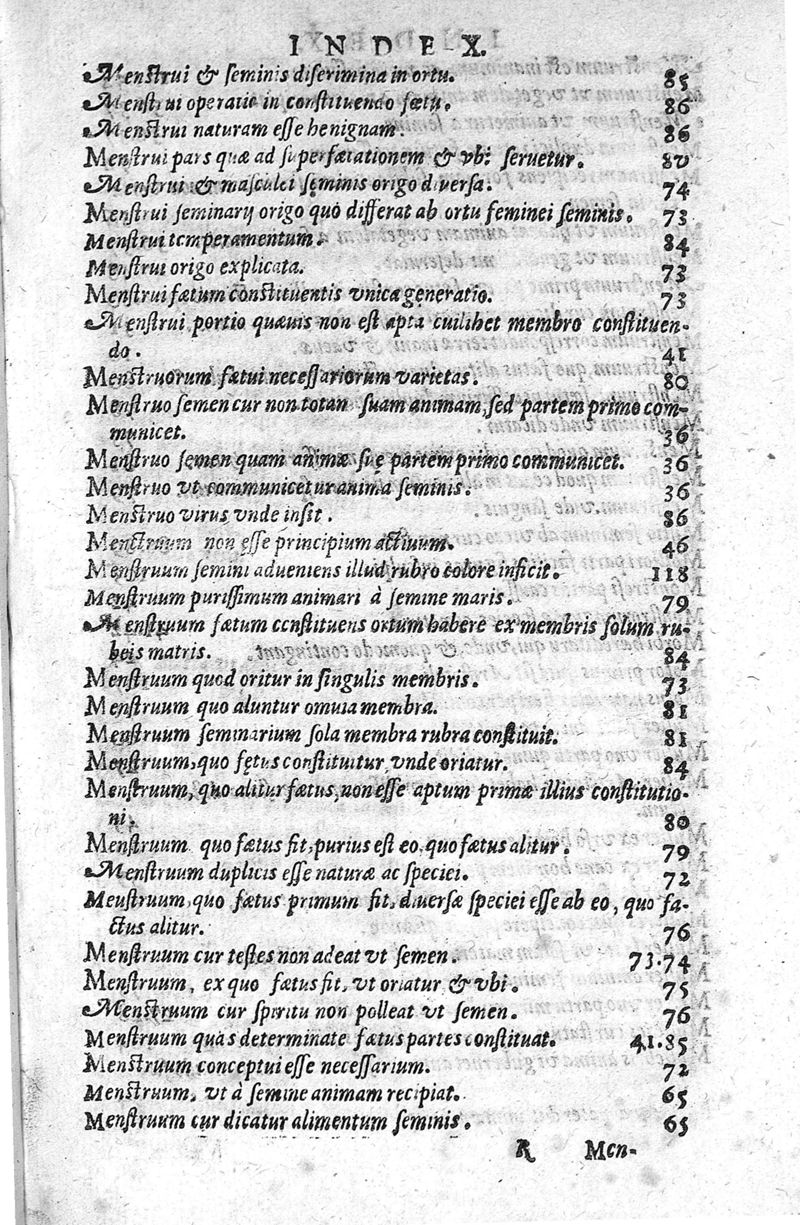 INDEX.
Menstrui & seminis discrimina in ortu. 85
Menstrui operatio in constituendo fœtu. 86
Menstrui naturam esse benignam. 86
Menstrui pars quæ ad superfœtationem & vbi seruetur. 80
Menstrui & masculei seminis origo diuersa. 74
Menstrui seminarij origo quo differat ab ortu feminei seminis. 73
Menstrui temperamentum. 84
Menstrui origo explicata. 73
Menstrui fœtum constituentis vnica generatio. 73
Menstrui portio quæuis non est apta cuilibet membro constituen-
do. 41
Menstruorum fœtui necessariorum varietas. 80
Menstruo semen cur non totam suam animam, sed partem primo com-
municet. 36
Menstruo semen quam animæ suę partem primo communicet. 36
Menstruo vt communicetur anima seminis. 36
Menstruo virus vnde insit. 86
Menstruum non esse principium actiuum. 46
Menstruum semini adueniens illud rubro colore inficit. 118
Menstruum purissimum animari à semine maris. 79
Menstruum fœtum constituens ortum habere ex membris solum ru-
beis matris. 84
Menstruum quod oritur in singulis membris. 73
Menstruum quo aluntur omnia membra. 81
Menstruum seminarium sola membra rubra constituit. 81
Menstruum, quo fętus constituitur, vnde oriatur. 84
Menstruum, quo alitur fœtus, non esse aptum primæ illius constitutio-
ni. 80
Menstruum quo fœtus fit, purius est eo, quo fœtus alitur. 79
Menstruum duplicis esse naturæ ac speciei. 72
Meustruum, quo fœtus primum fit, diuersæ speciei esse ab eo, quo fa-
ctus alitur. 76
Menstruum cur testes non adeat vt semen. 73.74
Menstruum, ex quo fœtus fit, vt oriatur & vbi. 75
Menstruum cur spiritu non polleat vt semen. 76
Menstruum quas determinate fœtus partes constituat. 41.85
Menstruum conceptui esse necessarium. 72
Menstruum, vt à semine animam recipiat. 65
Menstruum cur dicatur alimentum seminis. 65
R Men-